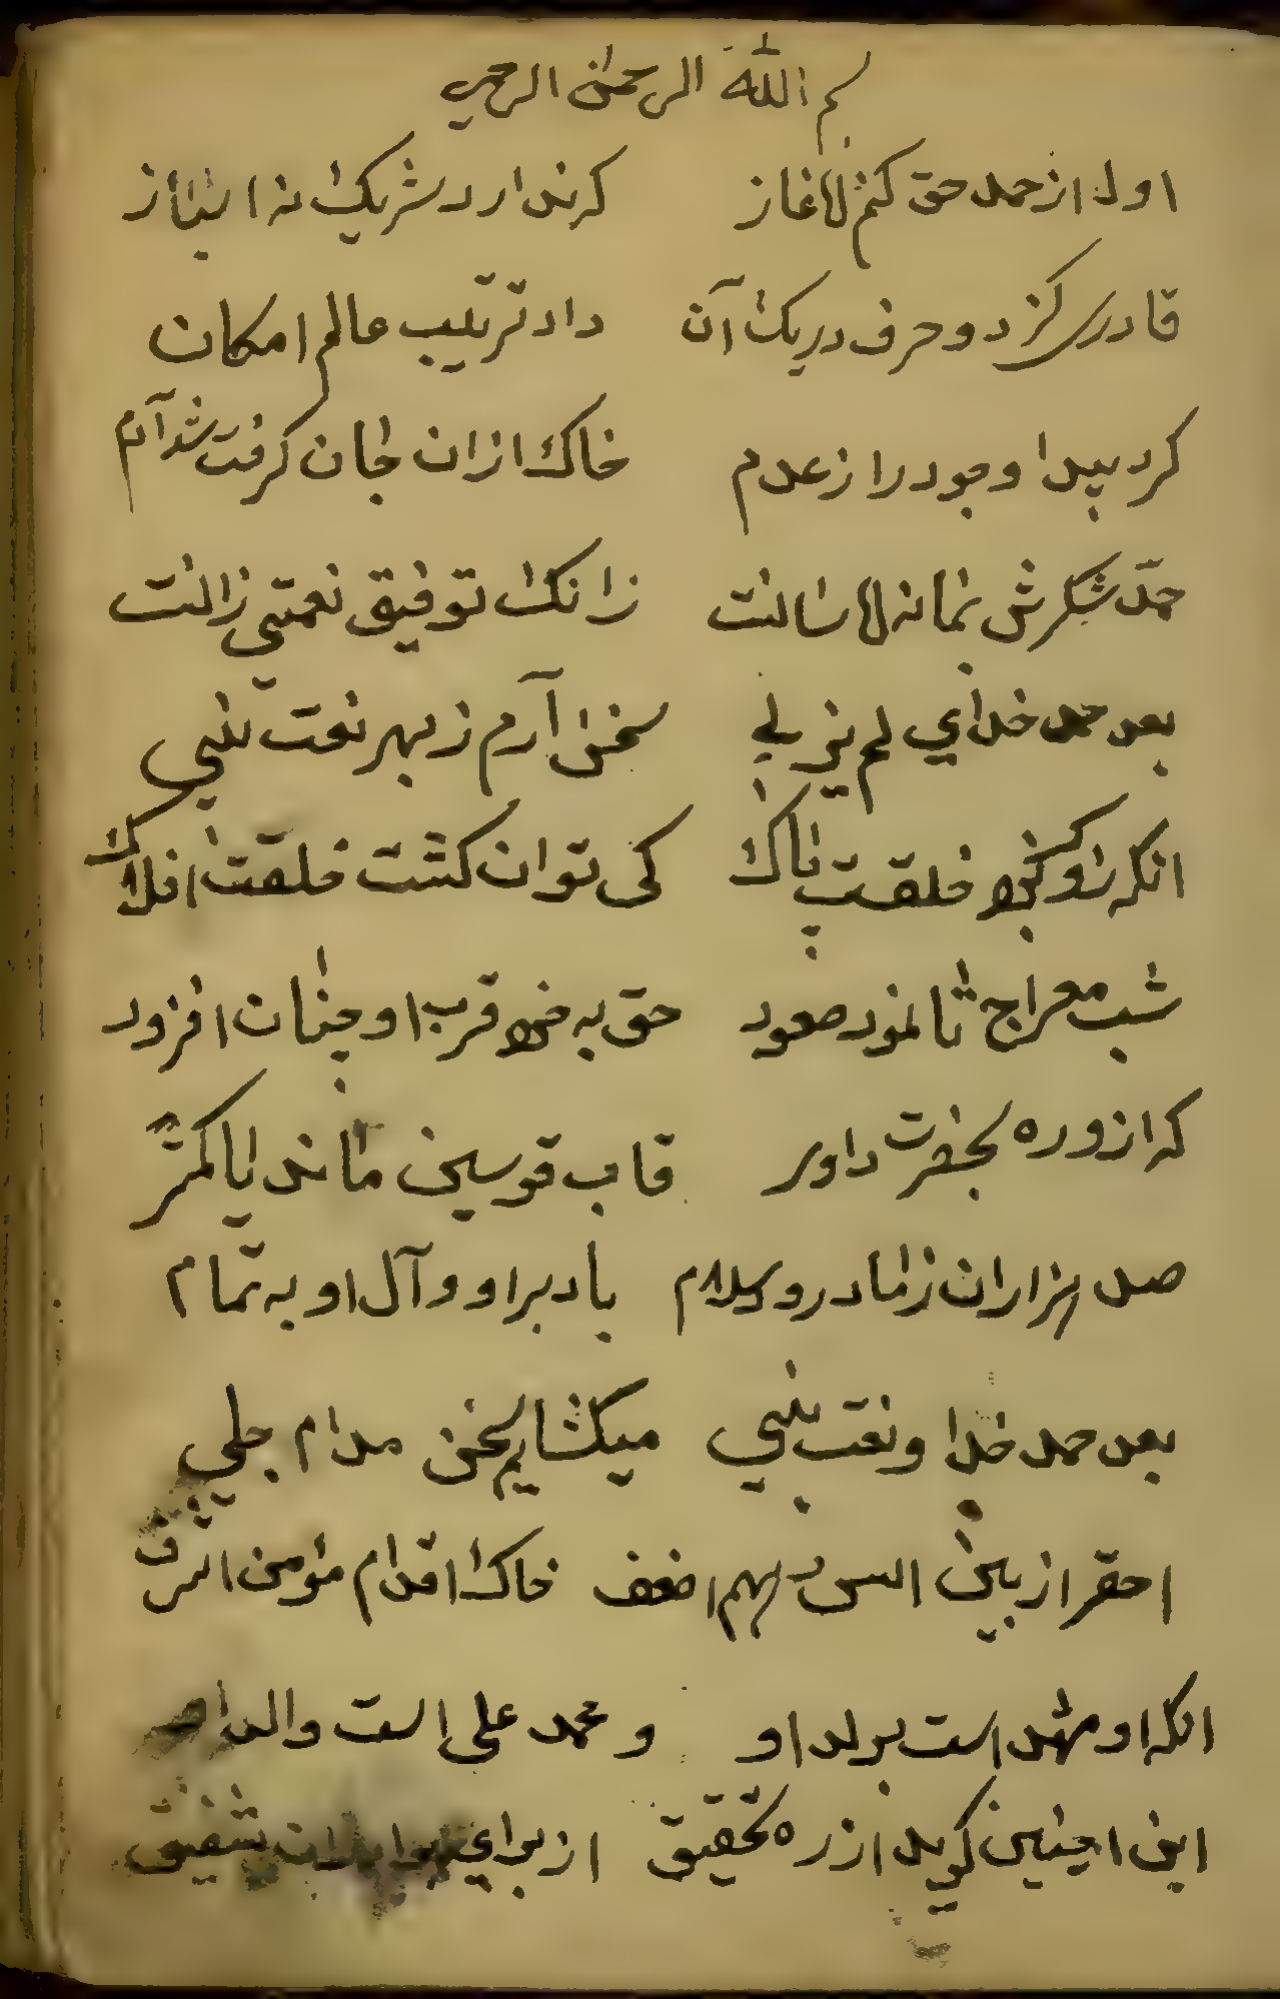 بسم الله الرحمن الرحيم
اول از حمد حق کنم آغاز که ندارد شریک نه انباز
قادری کز دو حرف در یک آن داد ترتیب عالم امکان
کرد پیدا وجود را ز عدم خاک ازان جان گرفت شد آدم
حمد شکرش زانک توفیق نعمتی زانست
بعد حمد خدای لم یزلی سخن آرم ز بهر نعت نبی
انکه خلقت پاک کی توان گشت خلقت افلاک
شب معراج تا نمود صعود حق به قرب او چنان افزود
که از وره بحضرت داور قاب قوسین ماند یا کمتر
صد هزاران ز ما درود و سلام باد بر او و آل او به تمام
بعد حمد خدا و نعت نبی میکشایم سخن مدام جلی
احقر از بین اضعف خاک اقدام مؤمن اشرف
انکه او مشهد است و محمد علی است والد او
این اچنین گوید از ره تحقیق از برای شفیق